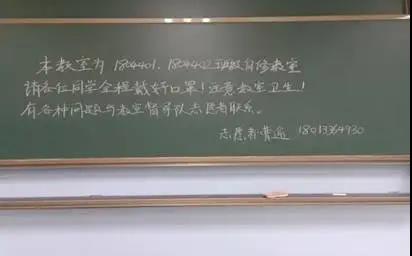 本教室为 1804401、1804402 班级自修教室
请各位同学全程戴好口罩！注意教室卫生！
有各种问题与教室督导队志愿者联系。
志愿者:曹逸 18013364930